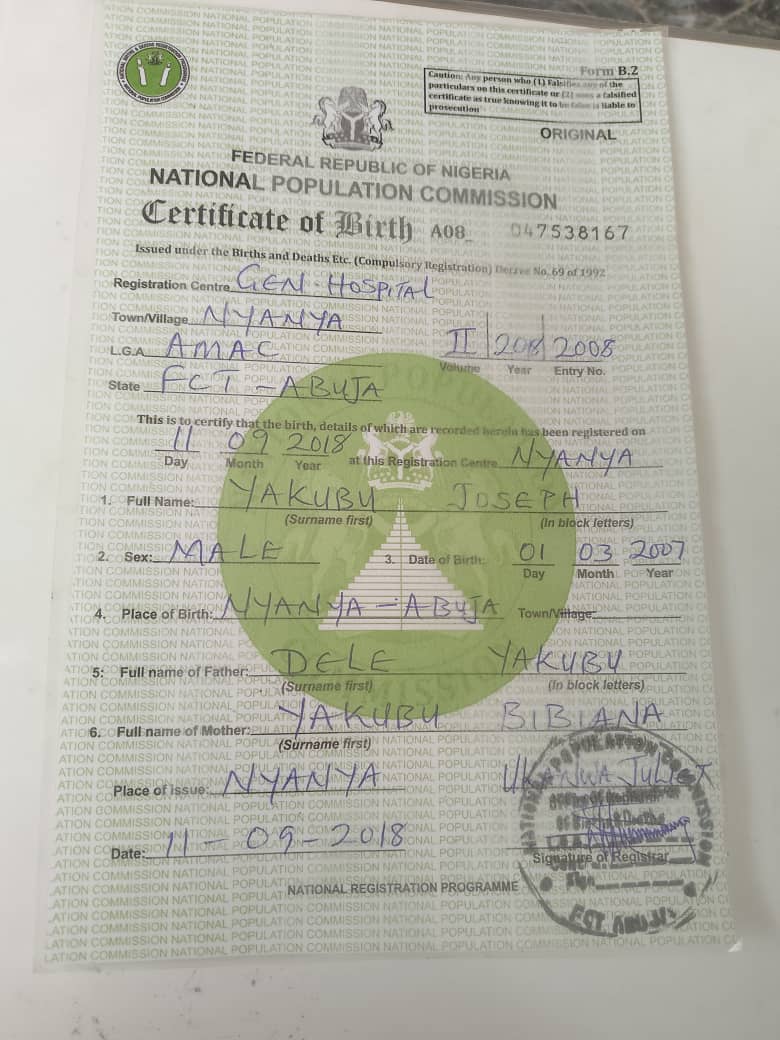 Form B.2
Caution: Any person who (1) Falsifies any of the
particulars on this certificate or (2) uses a falsified
certificate as true knowing it to be false is liable to
prosecution
ORIGINAL
FEDERAL REPUBLIC OF NIGERIA
NATIONAL POPULATION COMMISSION
Certificate of Birth A08 047538167
Issued under the Births and Deaths Etc. (Compulsory Registration) Decree No. 69 of 1992
Registration Centre GEN. HOSPITAL
Town/Village NYANYA
L.G.A AMAC II 208 2008
Volume Year Entry No.
State FCT - ABUJA
This is to certify that the birth, details of which are recorded herein has been registered on
11 09 2018 at this Registration Centre NYANYA
Day Month Year
1. Full Name: YAKUBU JOSEPH
(Surname first) (In block letters)
2. Sex: MALE 3. Date of Birth: 01 03 2007
Day Month Year
4. Place of Birth: NYANYA - ABUJA Town/Village:
5: Full name of Father: DELE YAKUBU
(Surname first) (In block letters)
6. Full name of Mother: YAKUBU BIBIANA
(Surname first)
Place of issue: NYANYA UKANWA JULIET
Date: 11 - 09 - 2018
Signature of Registrar
NATIONAL REGISTRATION PROGRAMME
NATIONAL POPULATION COMMISSION
FCT ABUJA